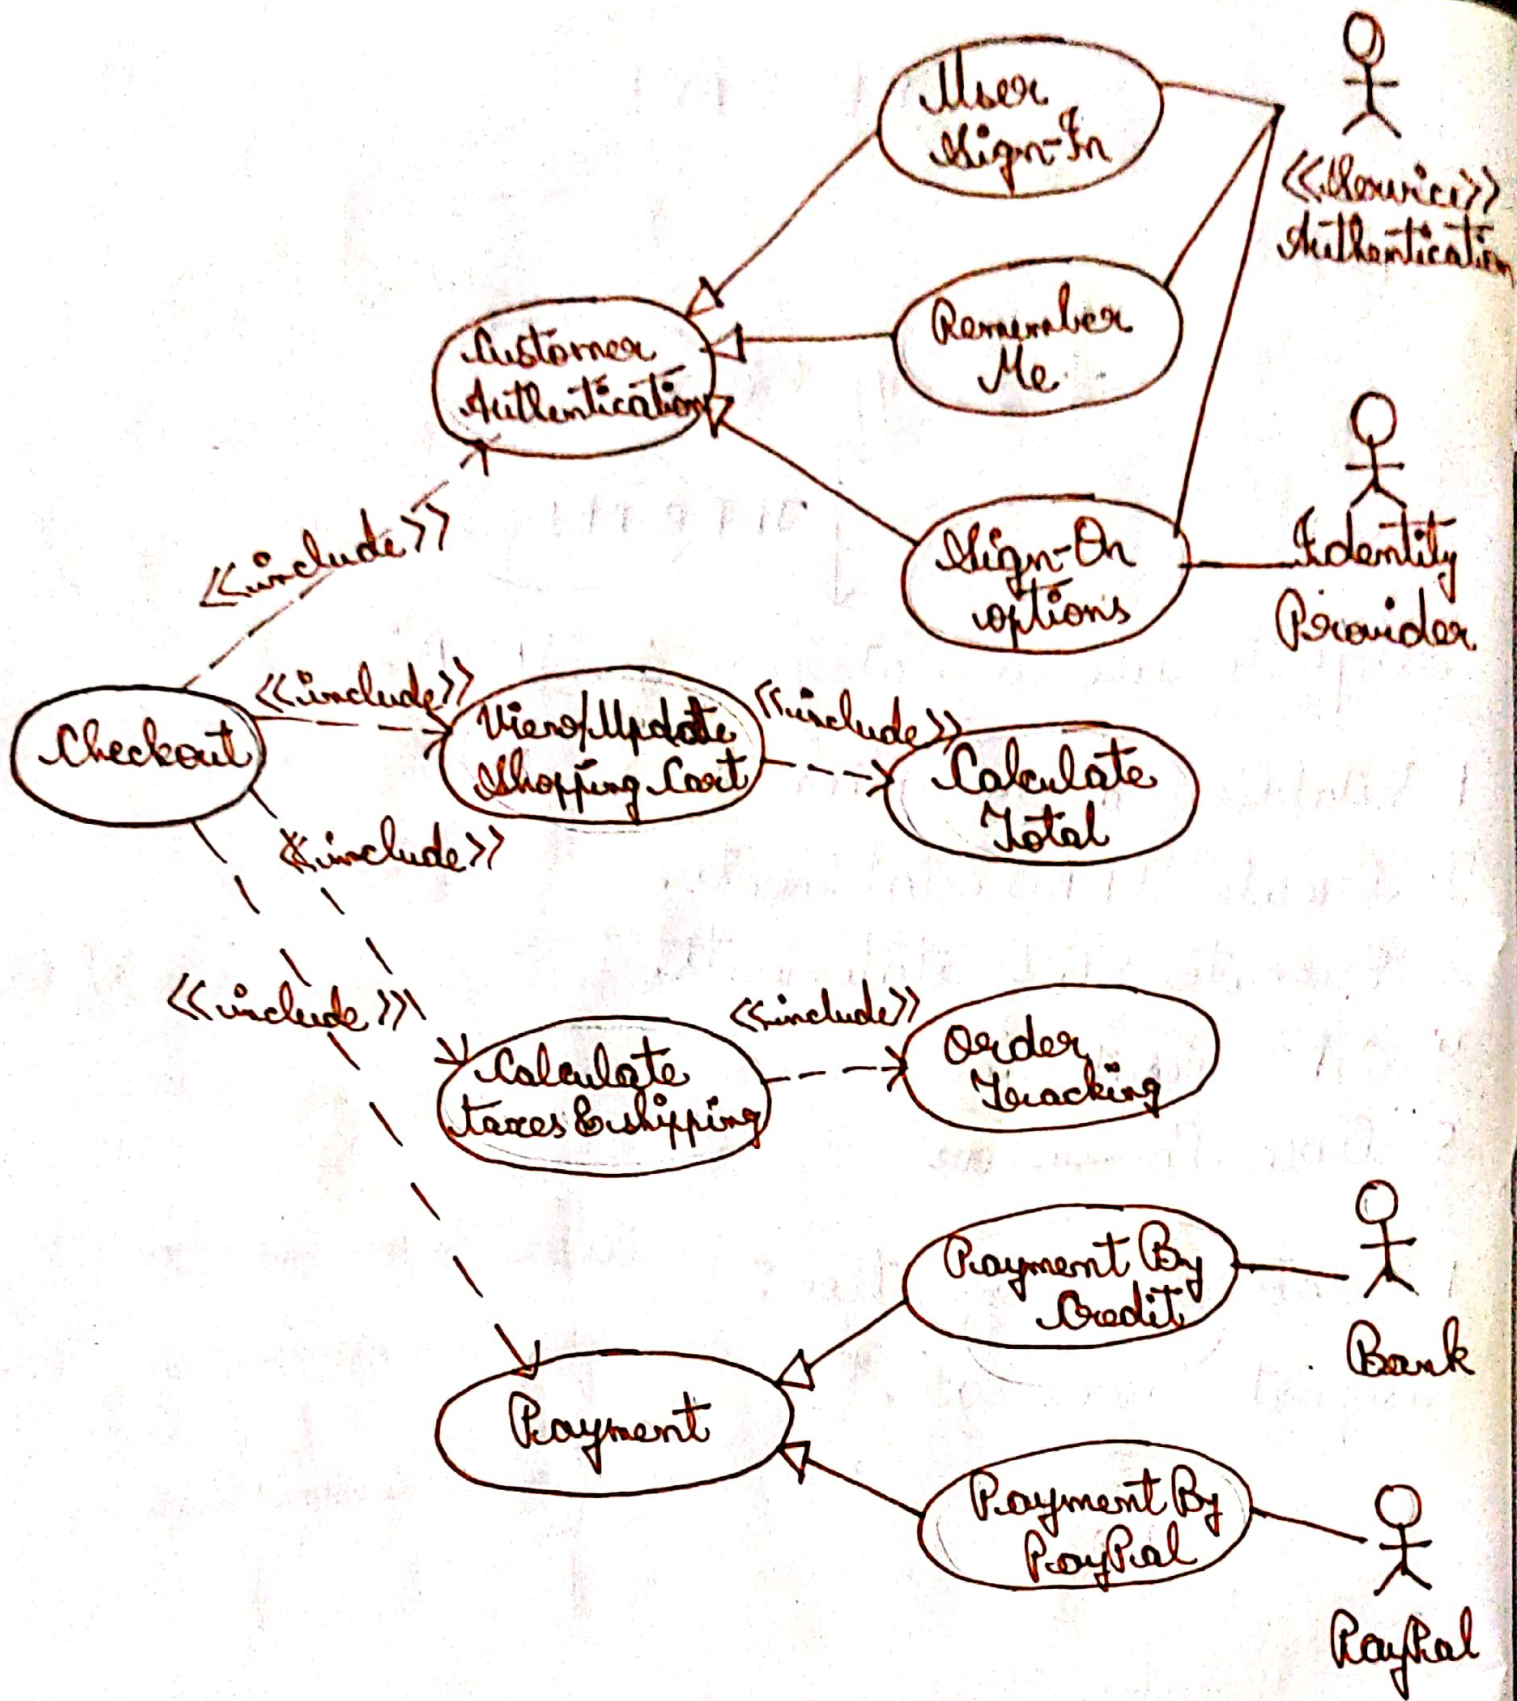 User
Sign-In
<<Service>>
Authentication
Remember
Me
Customer
Authentication
<<include>>
Sign-On
options
Identity
Provider
Checkout
<<include>>
View/Update
Shopping Cart
<<include>>
Calculate
Total
<<include>>
<<include>>
Calculate
taxes & shipping
<<include>>
Order
Tracking
Payment By
Credit
Bank
Payment
Payment By
PayPal
PayPal